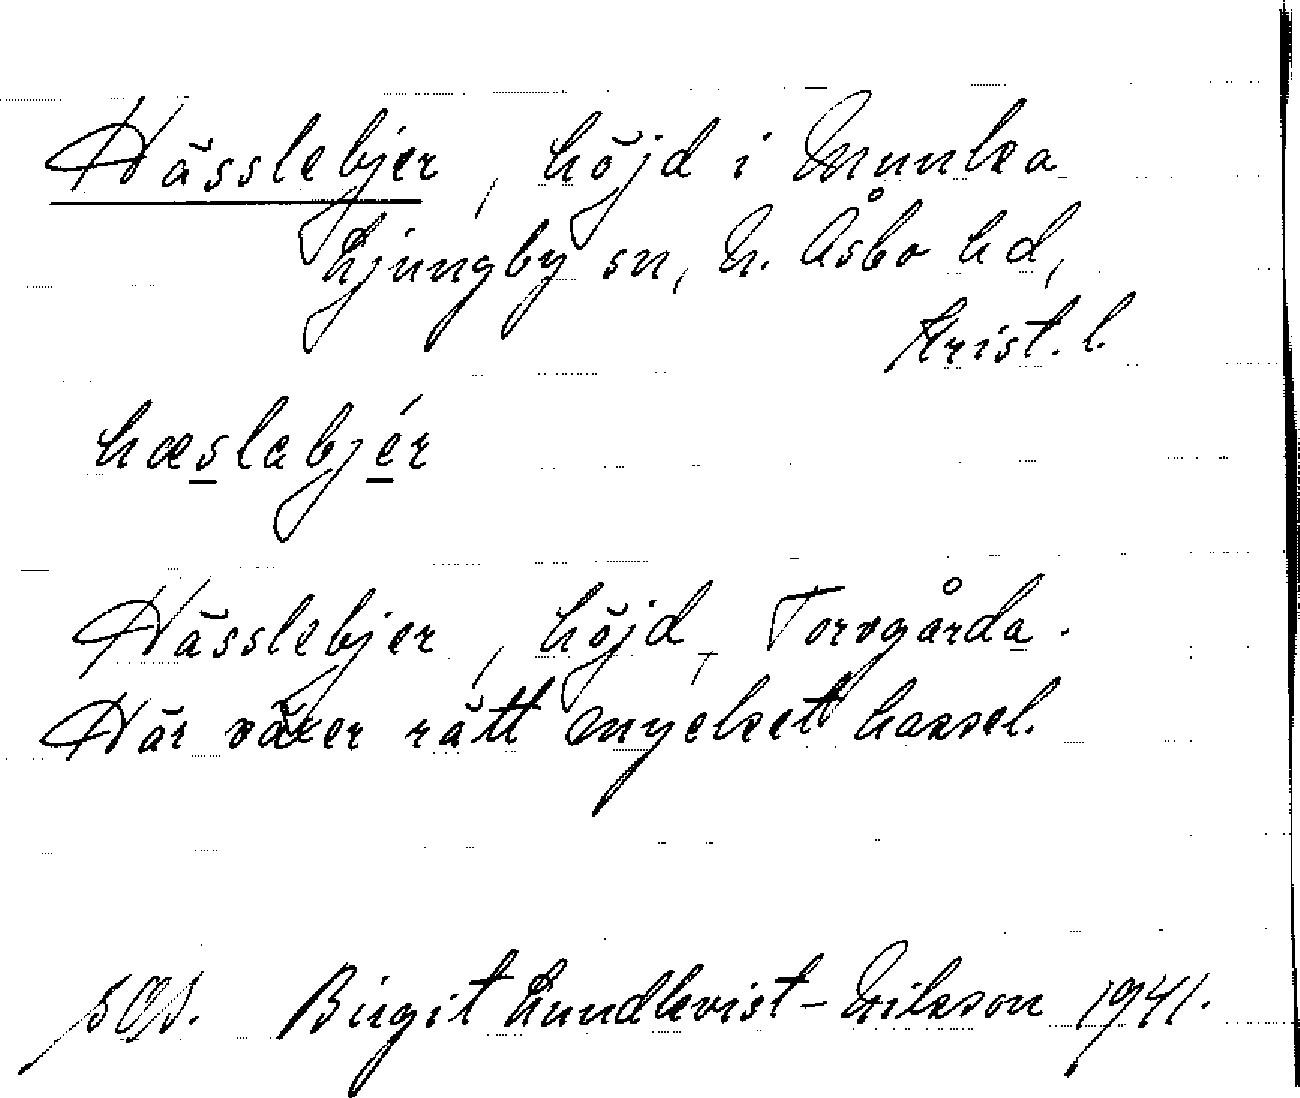 Hässlebjer, höjd i Munka
Ljungby sn, N. Åsbo hd,
Krist. l.
hæslabjér
Hässlebjer, höjd, Torvgårda.
Här växer rätt mycket hassel.
Birgit Lundkvist-Eriksson 1941.